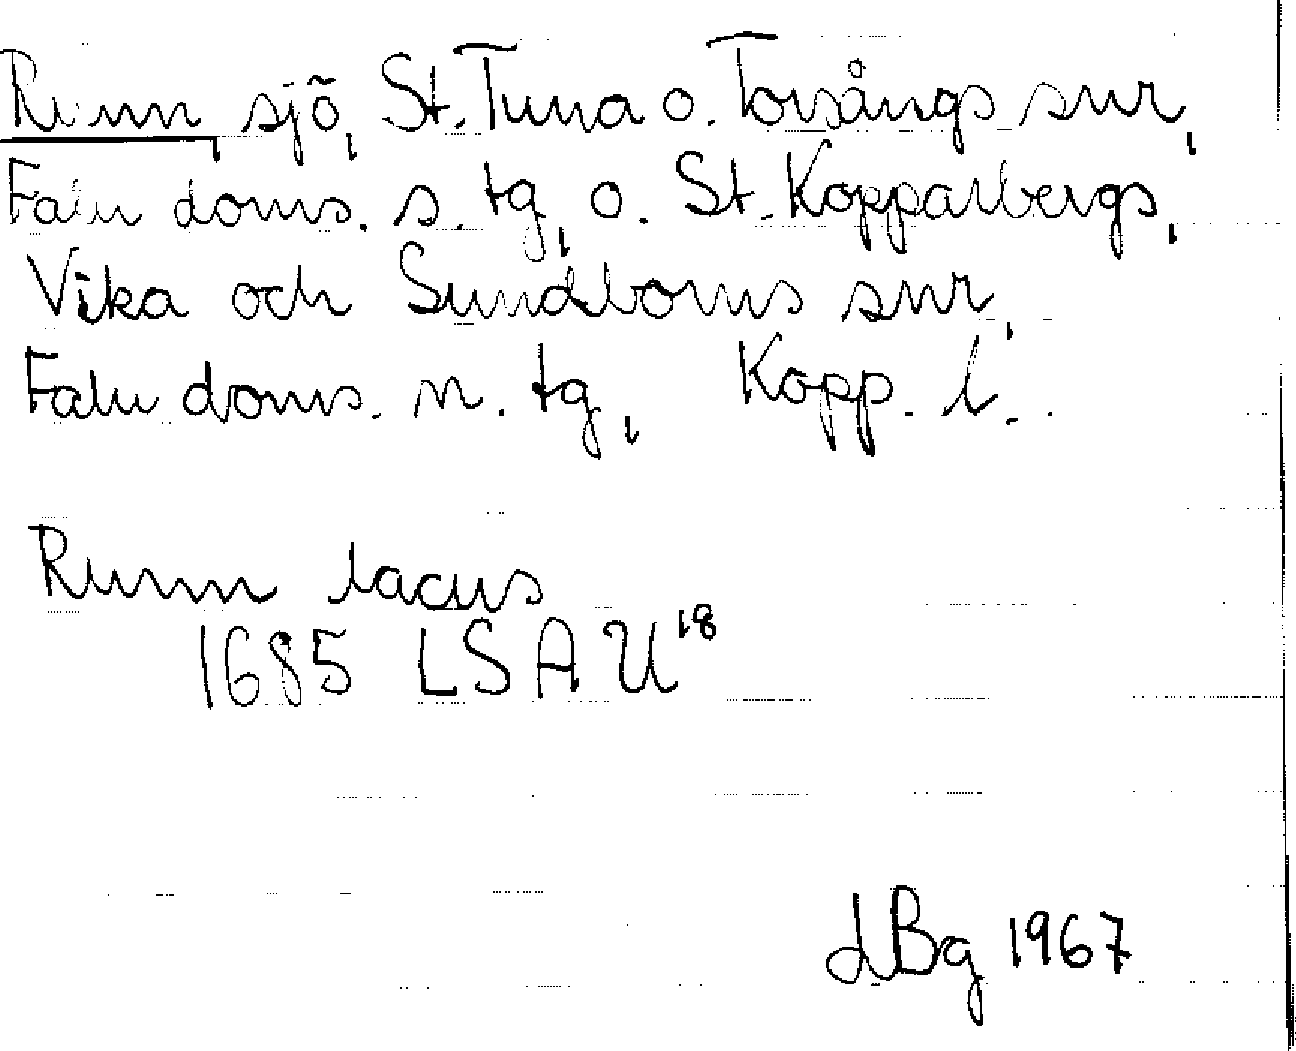 Runn, sjö, St. Tuna o. Torsångs snr,
Falu doms. s. tg, o. St. Kopparbergs,
Vika och Sundborns snr,
Falu doms. n. tg, Kopp. l.
Runn lacus
1685 LSA U18
LBg 1967